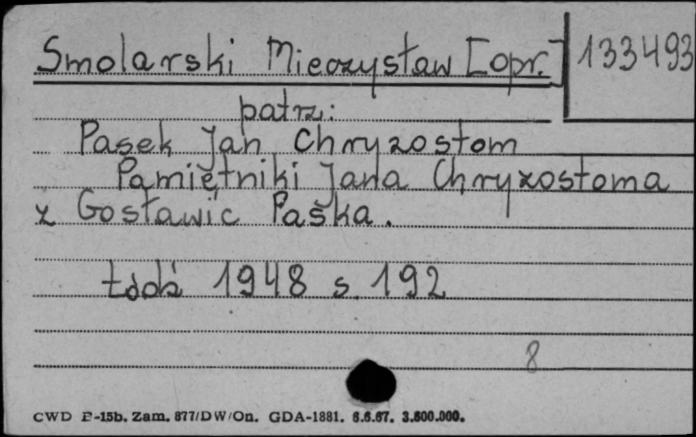 Smolarski Mieczysław [opr.] 133493
patrz:
Pasek Jan Chryzostom
Pamiętniki Jana Chryzostoma
z Gosławic Paska.
Łódź 1948 s. 192
8
CWD B-15b. Zam. 877/DW/On. GDA-1881. 6.6.67. 3.600.000.